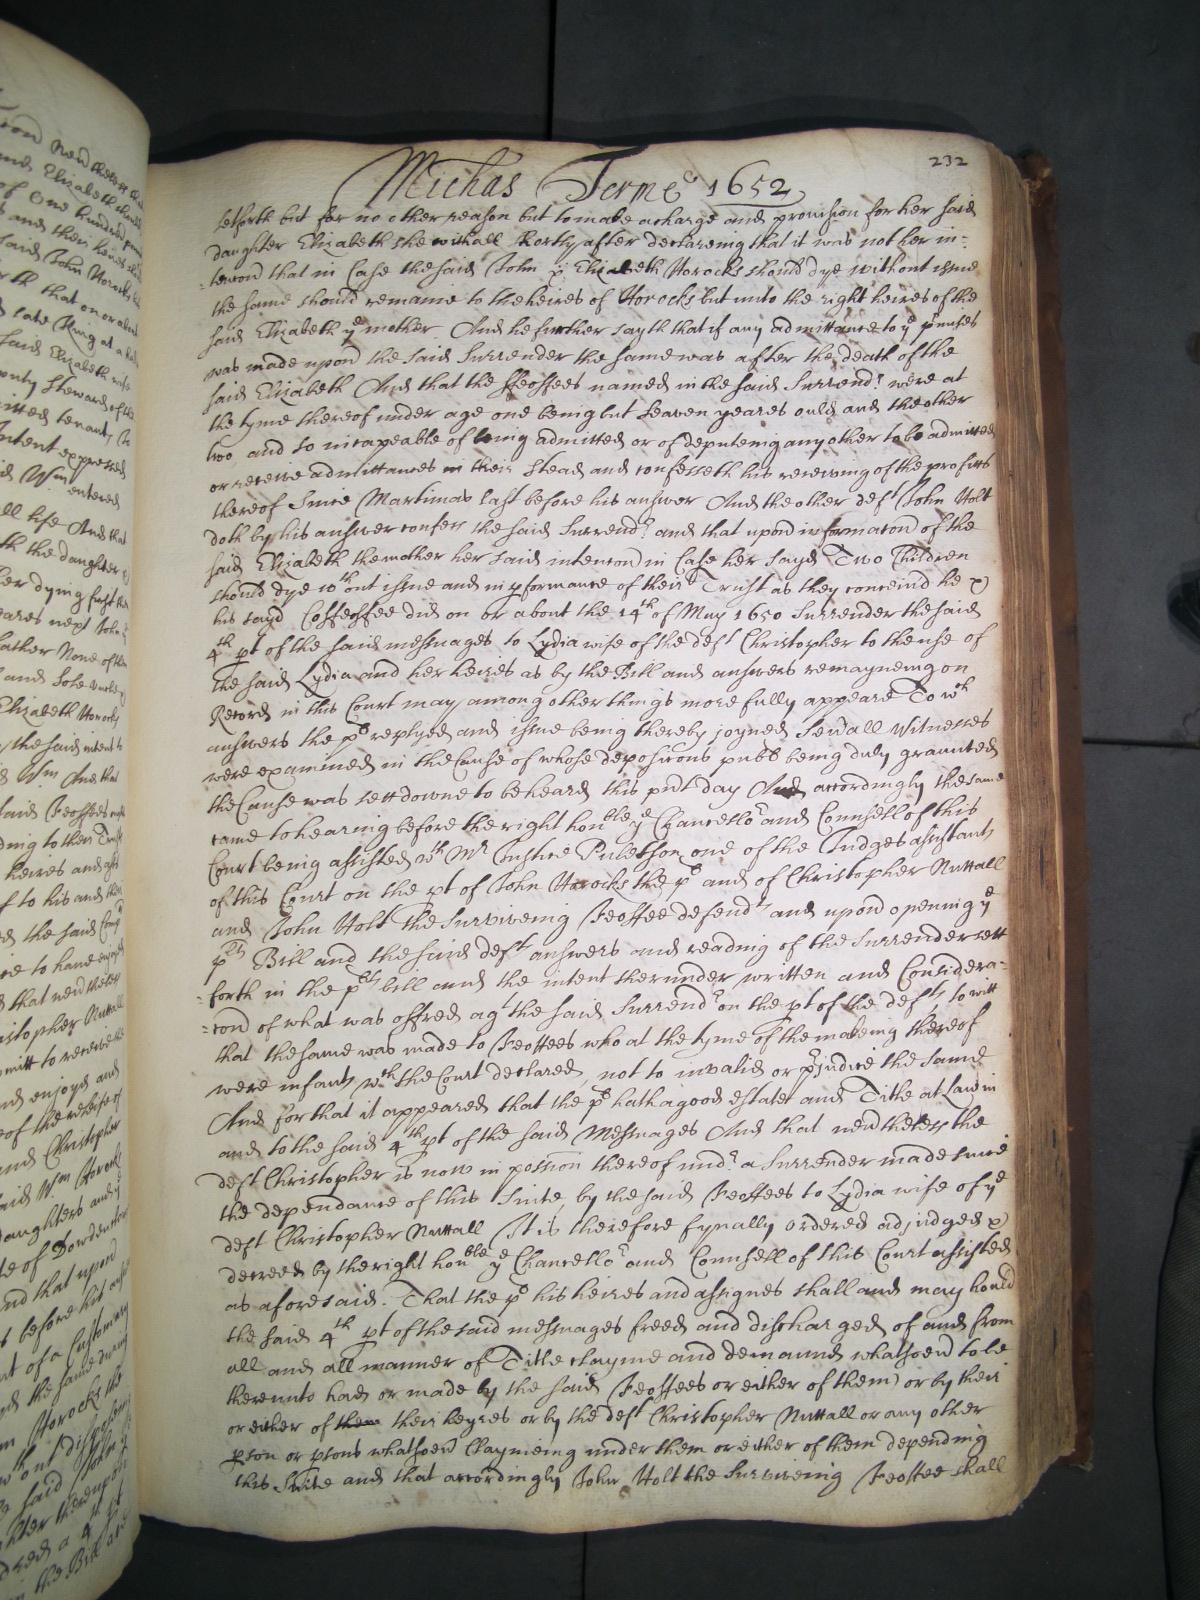 232
Michas Terme 1652
setforth but for no other reason but to make a charge and provision for her said
daughter Elizabeth she withall shortly after declareing that it was not her in-
-tencon that in Case the said John & Elizabeth Horocks should dye without issue
the same should remaine to the heires of Horocks but unto the right heires of the
said Elizabeth ye mother And he further sayth that if any admittance to ye pmisses
was made upon the said Surrender the same was after the death of the
said Elizabeth And that the ffeoffees named in the said Surrendr were at
the tyme thereof under age one being but seaven yeares ould and the other
two and so incapeable of being admitted or of deputeing any other to be admitted
or receive admittances in their stead and confesseth his receiving of the profitts
thereof Since Martinas last before his answer And the other deft John Holt
doth by his answer confess the said Surrendr and that upon informacon of the
said Elizabeth the mother her said intencon in Case her sayd Two Children
should dye wthout issue and in pformance of their Trust as they conceivd he &
his sayd Coffeoffee did on or about the 14th of May 1650 Surrender the said
4th pt of the said messuages to Lydia wife of the deft Christopher to the use of
the said Lydia and her heires as by the Bill and answers remayneing on
Record in this Court may among other things more fully appeare To wch
answers the pt replyed and issue being thereby joyned Sevall Witnesses
were examined in the Cause of whose deposicons publ being duly graunted
the Cause was sett downe to be heard this pnt day And accordingly the same
came to hearing before the right honble ye Chancellor and Counsell of this
Court being assisted wth Mr Justice Puleston one of the Judges assistants
of this Court on the pt of John Horocks the pt and of Christopher Nuttall
and John Holt the Surviveing Feoffee defendts and upon opening ye
plts Bill and the said defts answers and reading of the Surrender sett
-forth in the plts bill and the intent thereunder written and Considera-
-con of what was offred agt the said Surrendr on the pt of the defts to witt
that the same was made to Feoffees who at the tyme of the makeing thereof
were infants wch the Court declared, not to invalid or pjudice the same
And for that it appeared that the pt hath a good estate and Title at Law in
and to the said 4th pt of the said Messuages And that nevertheless the
deft Christopher is now in possion thereof undr a Surrender made since
the dependance of this Suite, by the said Feoffees to Lydia wife of ye
deft Christopher Nuttall It is therefore fynally ordered adjudged &
decreed by the right honble ye Chancellor and Counsell of this Court assisted
as aforesaid. That the pt his heires and assignes shall and may hould
the said 4th pt of the said messuages freed and discharged of and from
all and all manner of Title clayme and demaund whatsoevr to be
thereunto had or made by the said Feoffees or either of them or by their
or either of them their heyres or by the deft Christopher Nuttall or any other
pson or psons whatsoevr Clayming under them or either of them depending
this Suite and that accordingly John Holt the Surviveing Feoffee shall